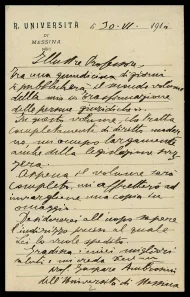 R. UNIVERSITÀ
DI
MESSINA
lì 30-VI-1914
Illustre Professore,
Fra una quindicina di giorni
si pubblicherà il secondo volume
della mia
delle persone giuridiche.
In questo volume, che tratta
completamente di diritto moder-
no, mi occupo largamente
anche della legislazione sviz-
zera.
Appena il volume sarà
completo, mi affretterò ad
inviargliene una copia in
omaggio.
Desidererei all'uopo sapere
l'indirizzo preciso al quale
Lei lo vuole spedito.
Gradisca i miei migliori
saluti e mi creda
prof. Gaspare Ambrosini
dell'Università di Messina